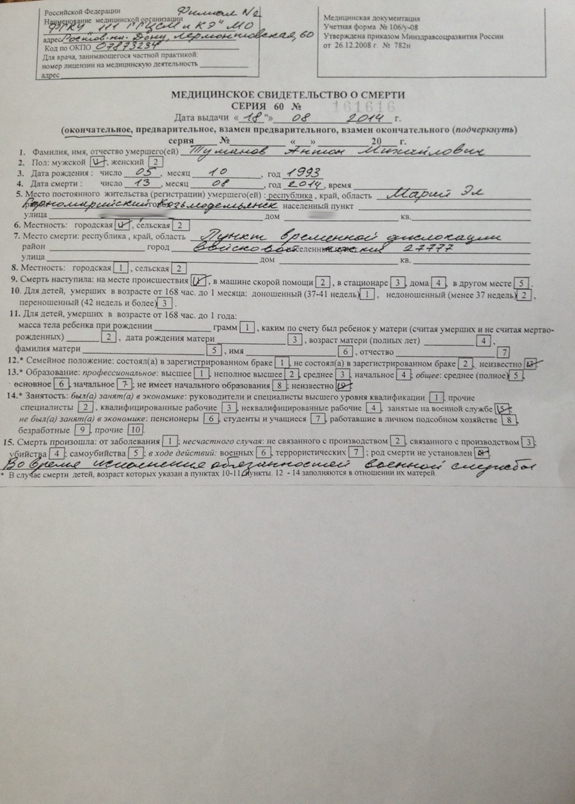 Российской Федерации Филиал №2
Наименование медицинской организации
ФГКУ "111 ГГЦСМ и КЭ" МО
адрес Ростов-на-Дону, Лермонтовская, 60
Код по ОКПО 07873234
Для врача, занимающегося частной практикой:
номер лицензии на медицинскую деятельность
адрес
Медицинская документация
Учетная форма № 106/у-08
Утверждена приказом Минздравсоцразвития России
от 26.12.2008 г. № 782н
МЕДИЦИНСКОЕ СВИДЕТЕЛЬСТВО О СМЕРТИ
СЕРИЯ 60 № 161616
Дата выдачи « 18 » 08 2014 г.
(окончательное, предварительное, взамен предварительного, взамен окончательного (подчеркнуть)
серия № « » 20 г.
1. Фамилия, имя, отчество умершего(ей) Туманов Антон Михайлович
2. Пол: мужской 1, женский 2
3. Дата рождения: число 05, месяц 10, год 1993
4. Дата смерти: число 13, месяц 08, год 2014, время
5. Место постоянного жительства (регистрации) умершего(ей): республика, край, область Марий Эл
Горномарийский Козьмодемьянск населенный пункт
улица дом кв.
6. Местность: городская 1, сельская 2
7. Место смерти: республика, край, область Пункт временной дислокации
район город войсковой 27777
улица дом кв.
8. Местность: городская 1, сельская 2
9. Смерть наступила: на месте происшествия 1, в машине скорой помощи 2, в стационаре 3, дома 4, в другом месте 5.
10. Для детей, умерших в возрасте от 168 час. до 1 месяца: доношенный (37-41 недель) 1, недоношенный (менее 37 недель) 2,
переношенный (42 недель и более) 3.
11. Для детей, умерших в возрасте от 168 час. до 1 года:
масса тела ребенка при рождении грамм 1, каким по счету был ребенок у матери (считая умерших и не считая мертво-
рожденных) 2, дата рождения матери 3, возраст матери (полных лет) 4,
фамилия матери 5, имя 6, отчество 7
12.* Семейное положение: состоял(а) в зарегистрированном браке 1, не состоял(а) в зарегистрированном браке 2, неизвестно 3
13.* Образование: профессиональное: высшее 1, неполное высшее 2, среднее 3, начальное 4; общее: среднее (полное) 5,
основное 6, начальное 7; не имеет начального образования 8; неизвестно 9
14.* Занятость: был(а) занят(а) в экономике: руководители и специалисты высшего уровня квалификации 1, прочие
специалисты 2, квалифицированные рабочие 3, неквалифицированные рабочие 4, занятые на военной службе 5;
не был(а) занят(а) в экономике: пенсионеры 6, студенты и учащиеся 7, работавшие в личном подсобном хозяйстве 8,
безработные 9, прочие 10.
15. Смерть произошла: от заболевания 1; несчастного случая: не связанного с производством 2, связанного с производством 3;
убийства 4; самоубийства 5; в ходе действий: военных 6, террористических 7; род смерти не установлен 8
Во время исполнения обязанностей военной службы
* В случае смерти детей, возраст которых указан в пунктах 10-11, пункты 12 - 14 заполняются в отношении их матерей.